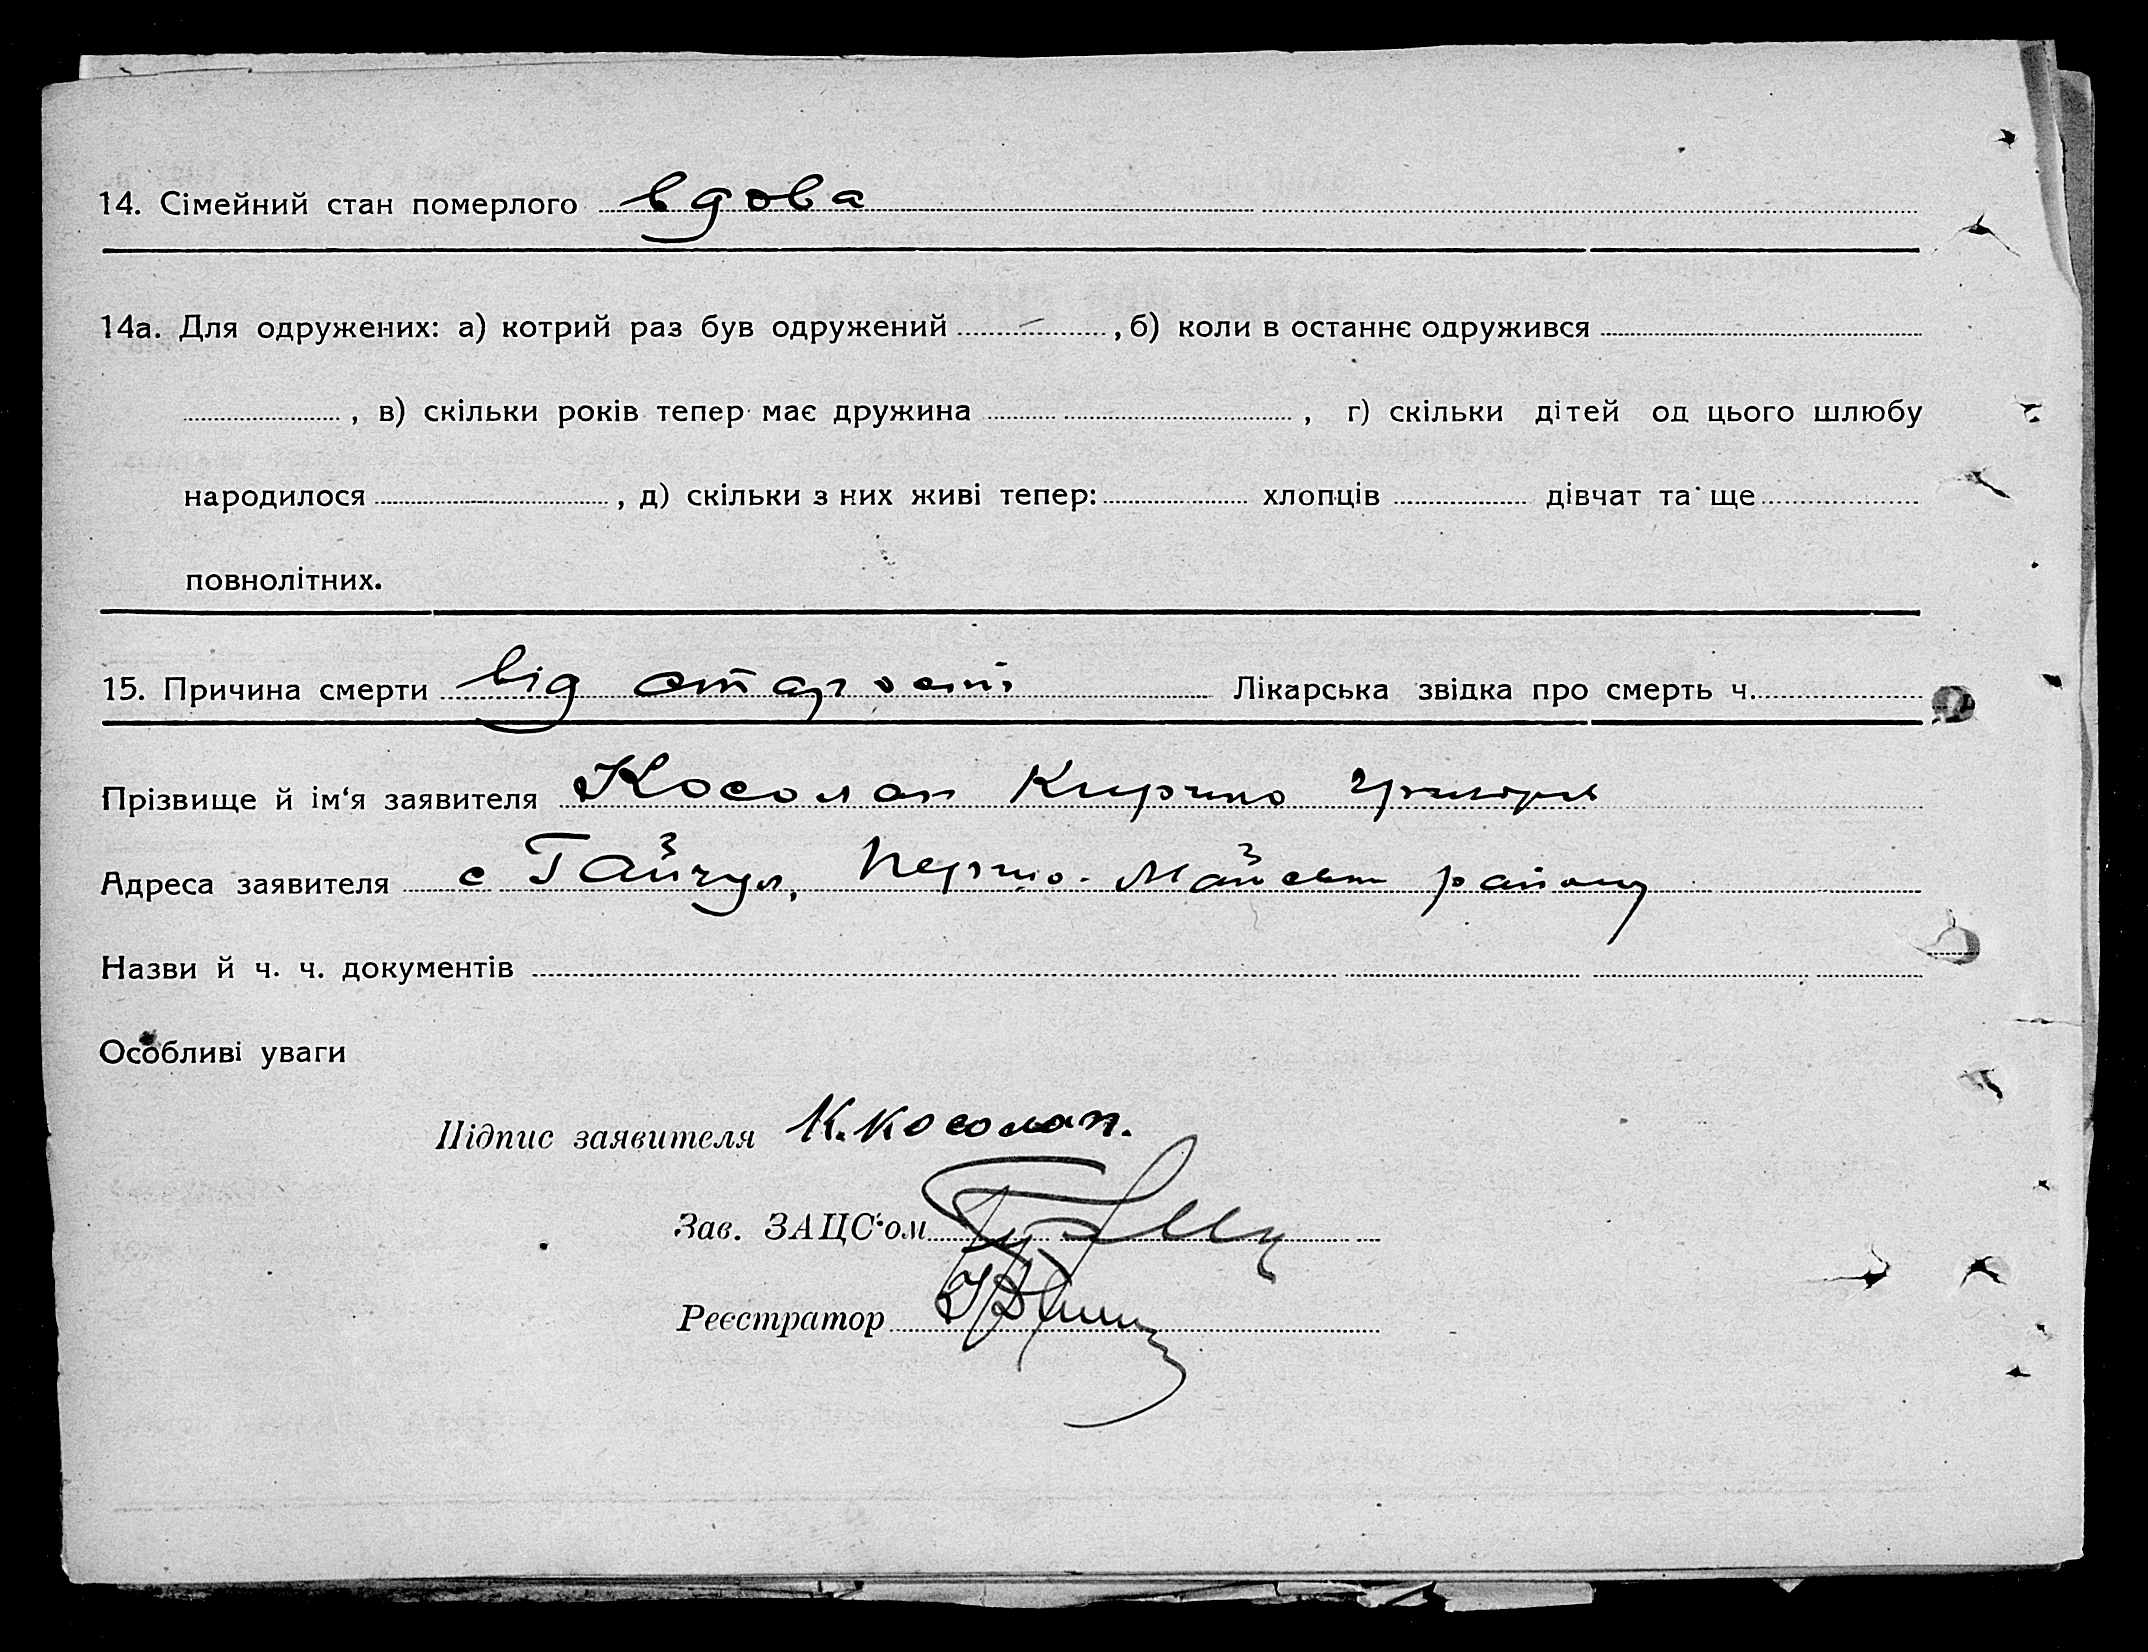 14. Сімейний стан померлого вдова
14а. Для одружених: а) котрий раз був одружений — , б) коли в останнє одружився
, в) скільки років тепер має дружина , г) скільки дітей од цього шлюбу
народилося , д) скільки з них живі тепер: хлопців дівчат та ще
повнолітних.
15. Причина смерти від старости Лікарська звідка про смерть ч.
Прізвище й ім'я заявителя Косолап Кирило
Адреса заявителя с Гайчул, Перто-Майськ району
Назви й ч. ч. документів
Особливі уваги
Підпис заявителя К. Косолап.
Зав. ЗАЦС'ом
Реєстратор